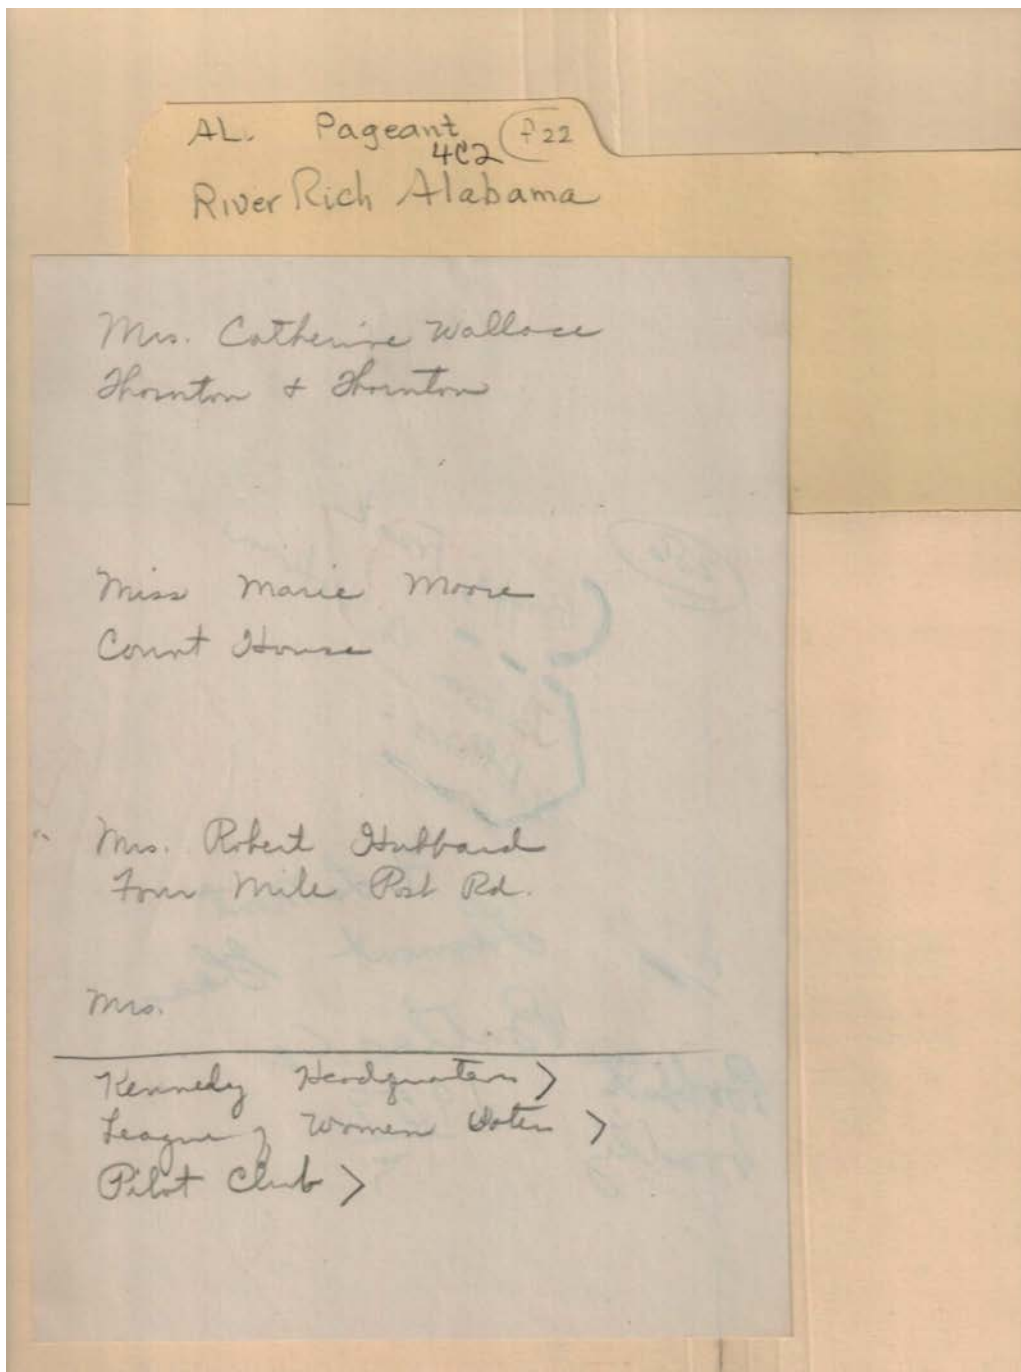 AL. Pageant f22
4C2
River Rich Alabama
Mrs. Catherine Wallace
Thornton & Thornton
Miss Marie Moore
Court House
Mrs. Robert Hubbard
Four Mile Post Rd.
Mrs.
Kennedy Headquarters >
League of Women Voters >
Pilot Club >